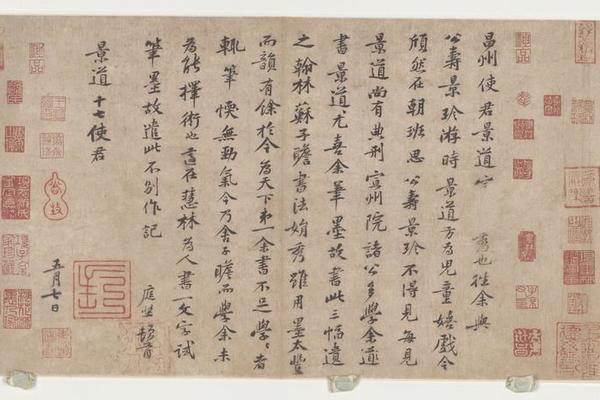 昌州使君景道宗秀也往余與
公壽景珎游時景道方為兒童嬉戲今
頎然在朝班思公壽景珎不得見每見
景道尚有典刑宣州院諸公多學余道
書景道尤喜余筆墨故書此三幅遺
之翰林蘇子瞻書法娟秀雖用墨太豐
而韻有餘於今為天下第一余書不足學學者
輒筆愞無勁氣今乃舍子瞻而學余未
為能擇術也適在慧林為人書一文字試
筆墨故遣此不別作記
庭堅頓首
景道十七使君
五月七日